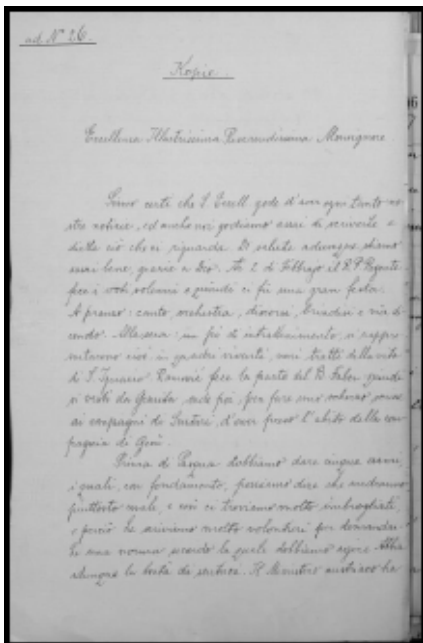 ad Nº 26.
Kopie.
Excellenza Illustrissima Reverendissima Monsignore
Sono certo che S. Excell. gode d'aver ogni tanto no-
stre notizie, ed anche noi godiamo assai di scriverle e
dirle ciò che ci riguarda. Di salute adunque stiamo
assai bene, grazie a Dio. Ai 2 di Febbrajo il R. P.
fece i voti solenni e quindi ci fu una gran festa.
A pranzo: canto, orchestra, discorsi, brindisi e via di-
cendo. Alla sera: un po' di intrattenimento, si rappre-
sentarono cioè in quadri viventi, varii tratti della vita
di S. Ignazio. fece la parte del B. Fabro, quindi
si vestì da Gesuita, onde poi, per fare uno scherzo,
ai compagni di, d'aver preso l'abito della com-
pagnia di Gesù.
Prima di Pasqua dobbiamo dare cinque esami,
i quali, con fondamento, possiamo dire che andranno
piuttosto male, e noi ci troviamo molto imbrogliati,
e perciò Le scriviamo molto volontieri per domandar-
Le una norma secondo la quale dobbiamo agire. Abbia
adunque la bontà di sentirci. Il Ministero austriaco ha